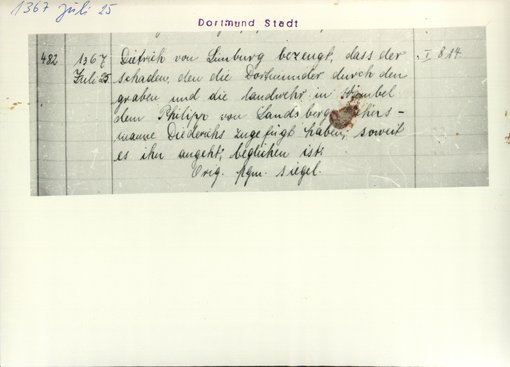 1367 Juli 25
Dortmund Stadt
482 1367 Dietrich von Limburg bezeugt, dass der I 814.
Juli 25. schaden, den die Dortmunder durch den
graben und die landwehr in
dem Philipp von Landsberg,
manne Diederichs zugefügt haben, soweit
es ihn angeht, beglichen ist.
Orig. pgm. siegel.